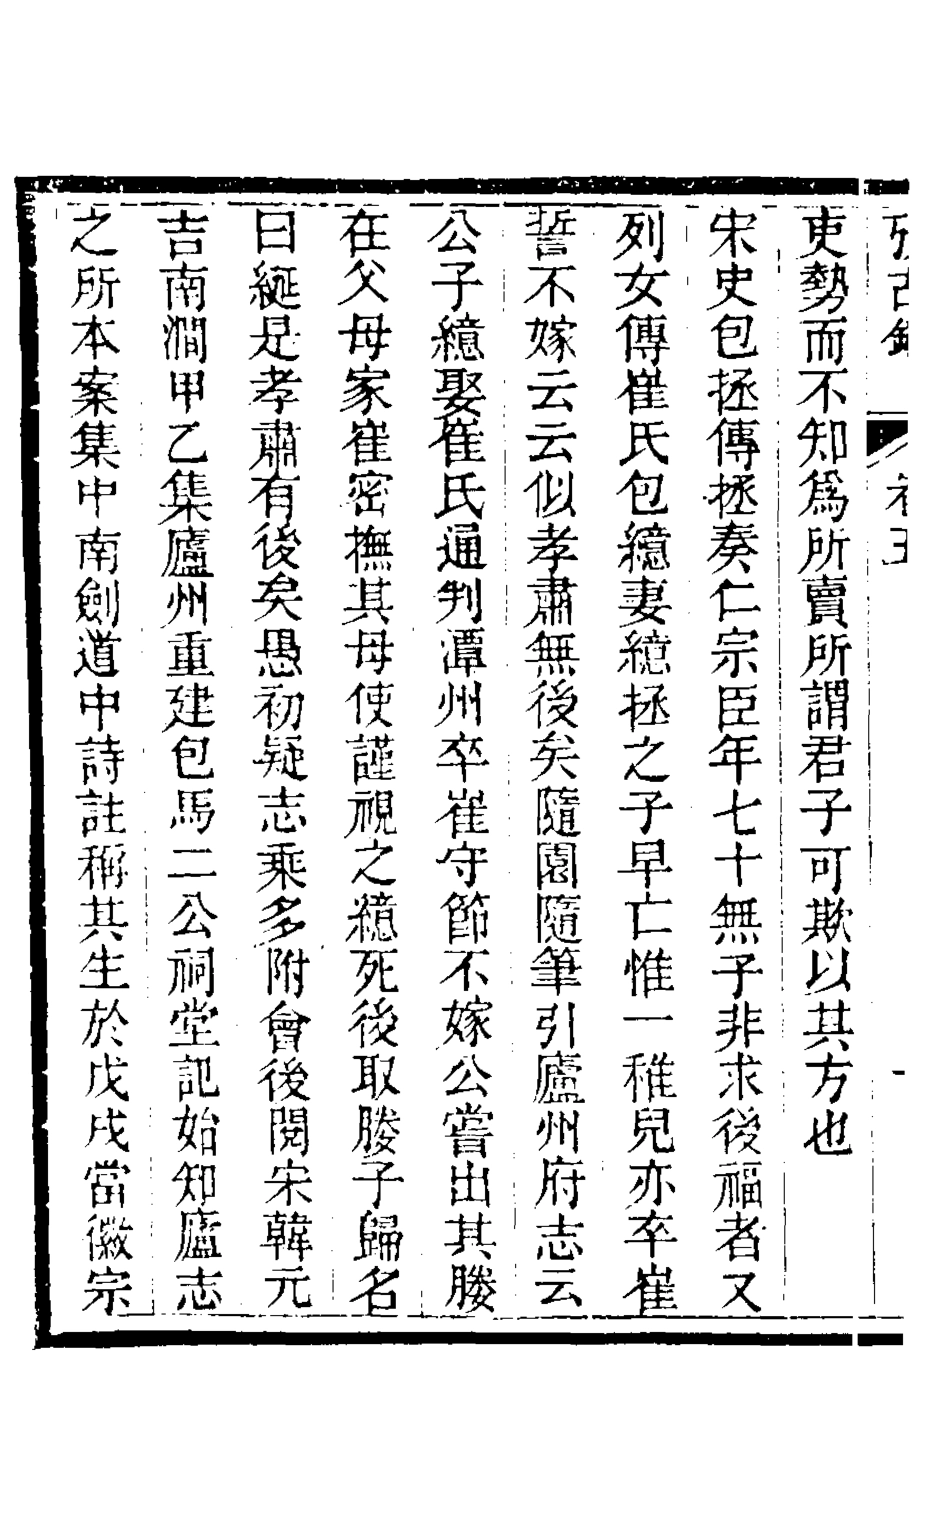 攷古錄 卷五
吏勢而不知爲所賣所謂君子可欺以其方也
宋史包拯傳拯奏仁宗臣年七十無子非求後福者又
列女傳崔氏包繶妻繶拯之子早亡惟一稚兒亦卒崔
誓不嫁云云似孝肅無後矣隨園隨筆引廬州府志云
公子繶娶崔氏通判潭州卒崔守節不嫁公嘗出其媵
在父母家崔密撫其母使謹視之繶死後取媵子歸名
曰綖是孝肅有後矣愚初疑志乘多附會後閱宋韓元
吉南澗甲乙集廬州重建包馬二公祠堂記始知廬志
之所本案集中南劍道中詩註稱其生於戊戌當徽宗